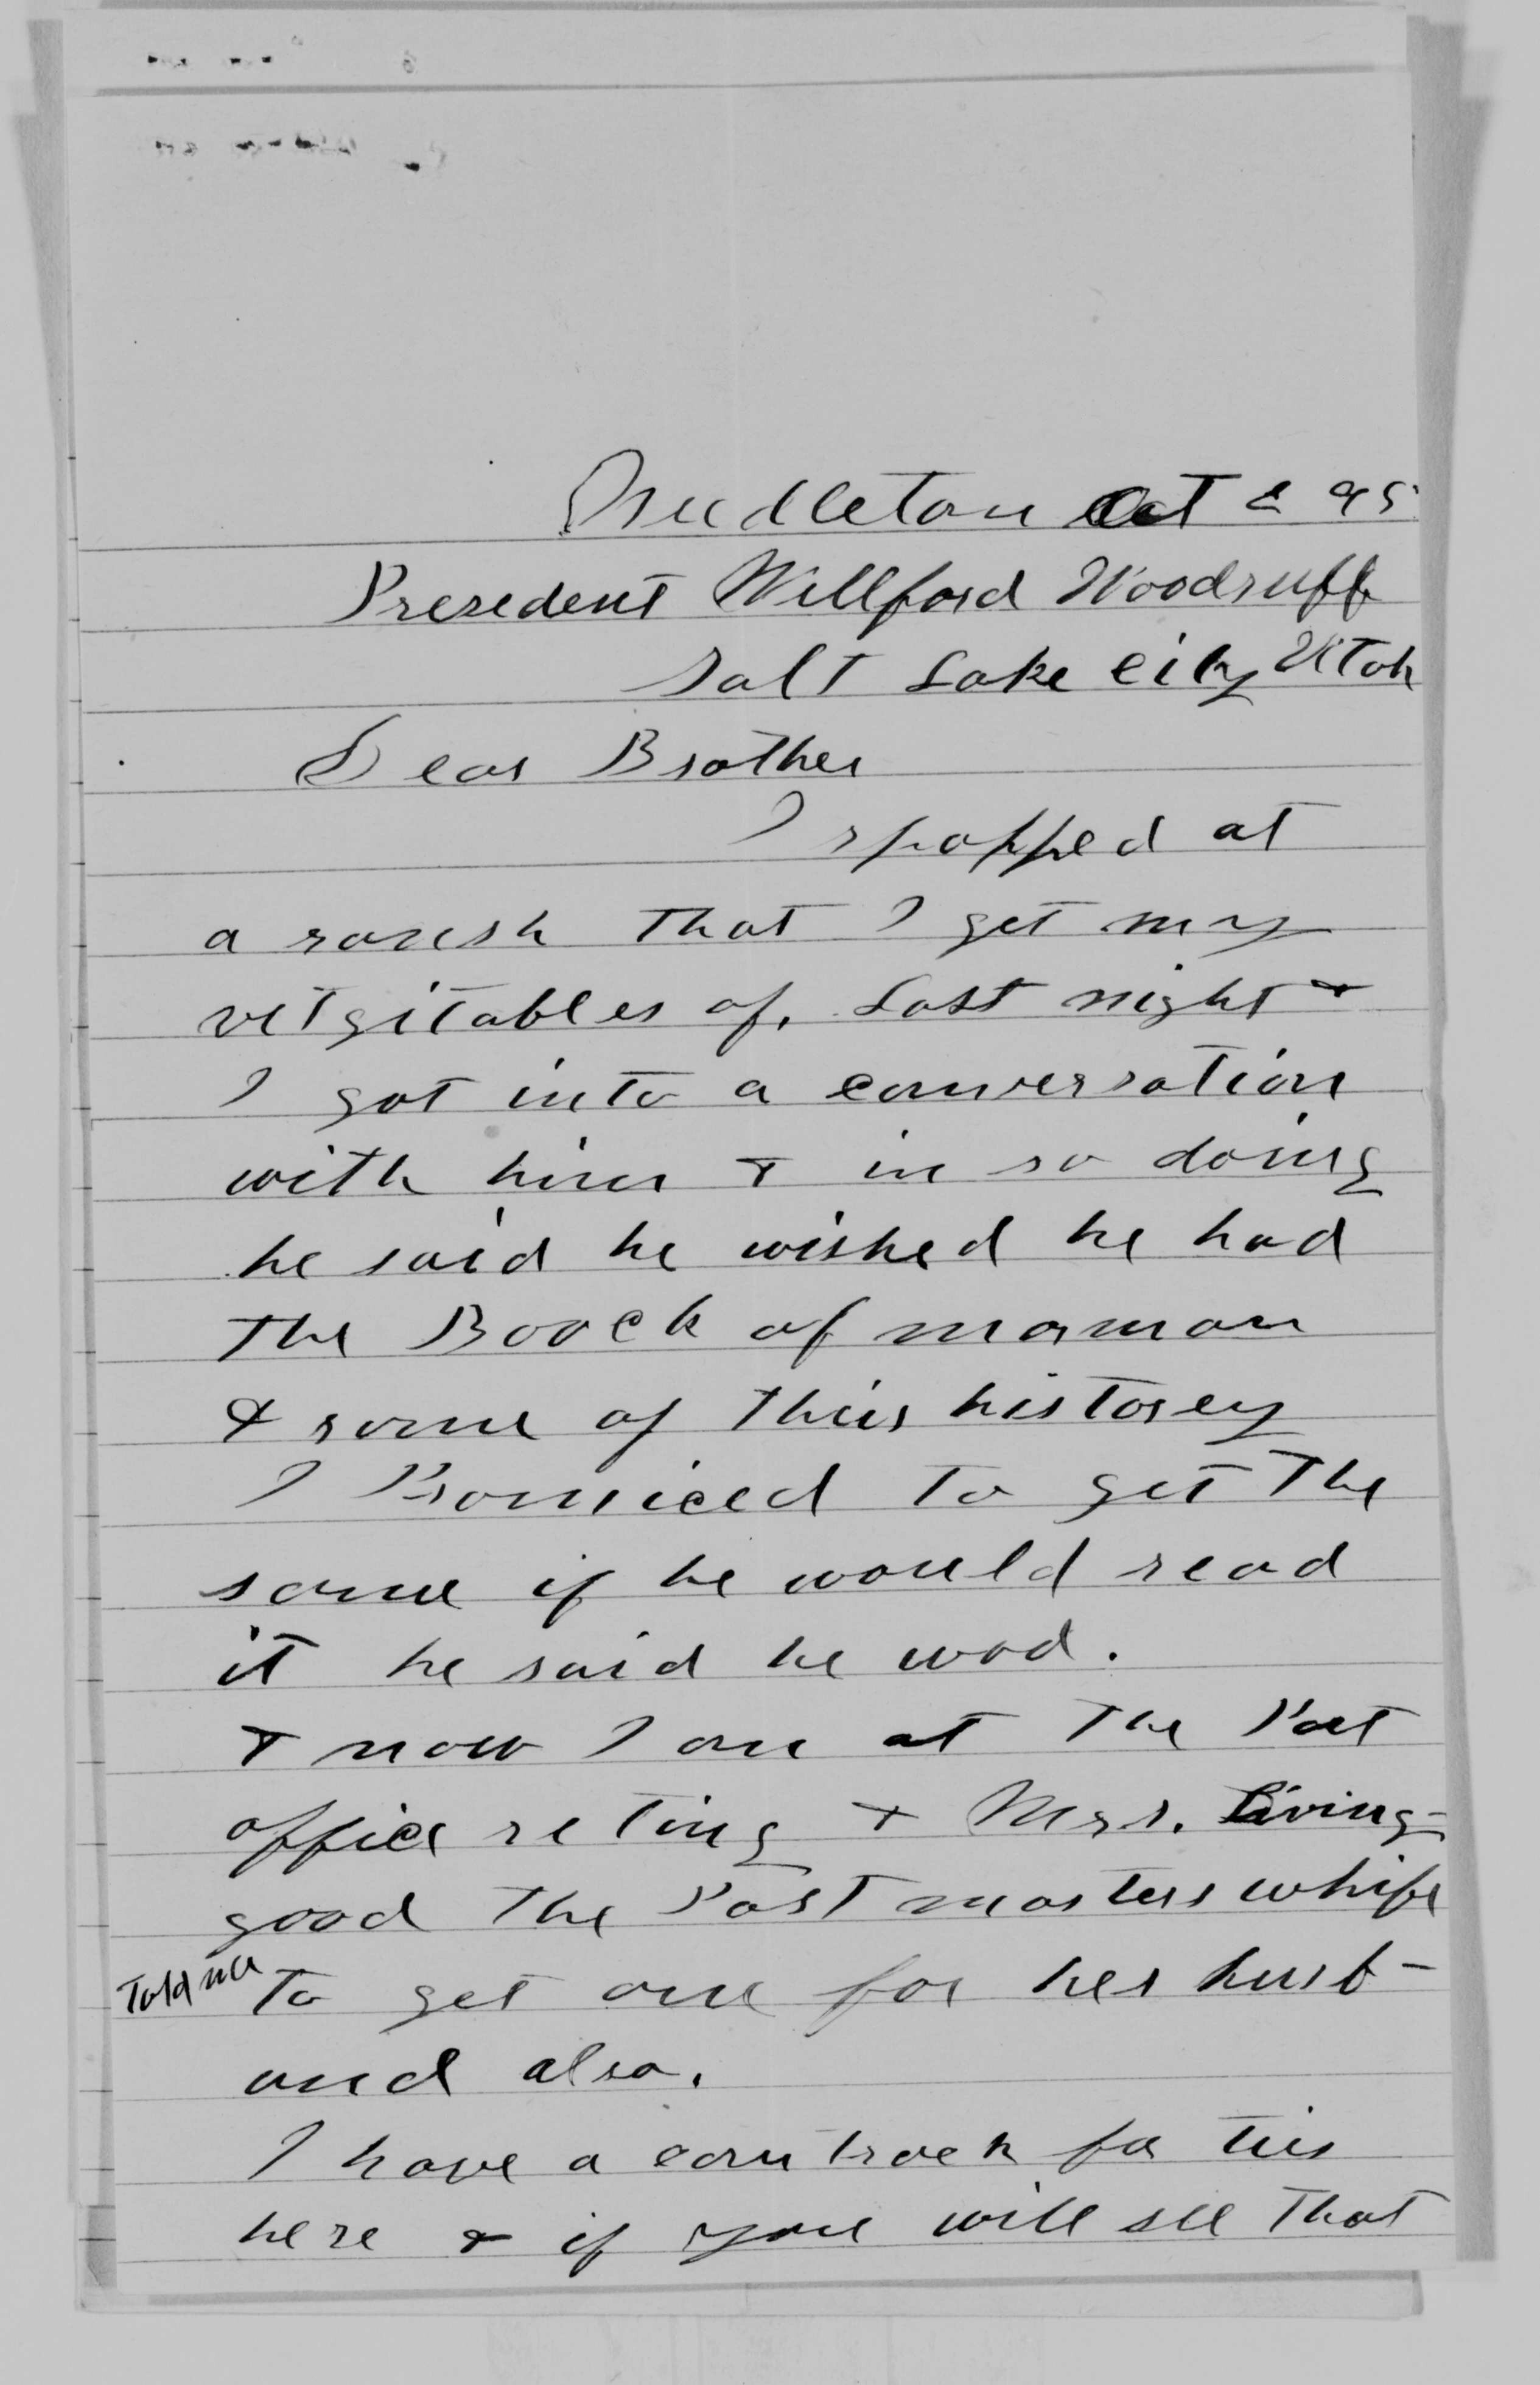 Oct 2 95
Presedent Willford Woodruff
Salt Lake City Utah
Dear Brother
I stopped at
a ransh that I get my
vetgitables of. Last night &
I got into a conversation
with him & in so doing
he said he wished he had
the Boock of mormon
& some of thiis historey
I Promiced to get the
same if he would read
it he said he wod.
& now I am at the Post
office reting & Mrs. Living-
good the Post masters whife
Told me to get one for her husb-
and also.
I have a contrack for ties
here & if you will see that